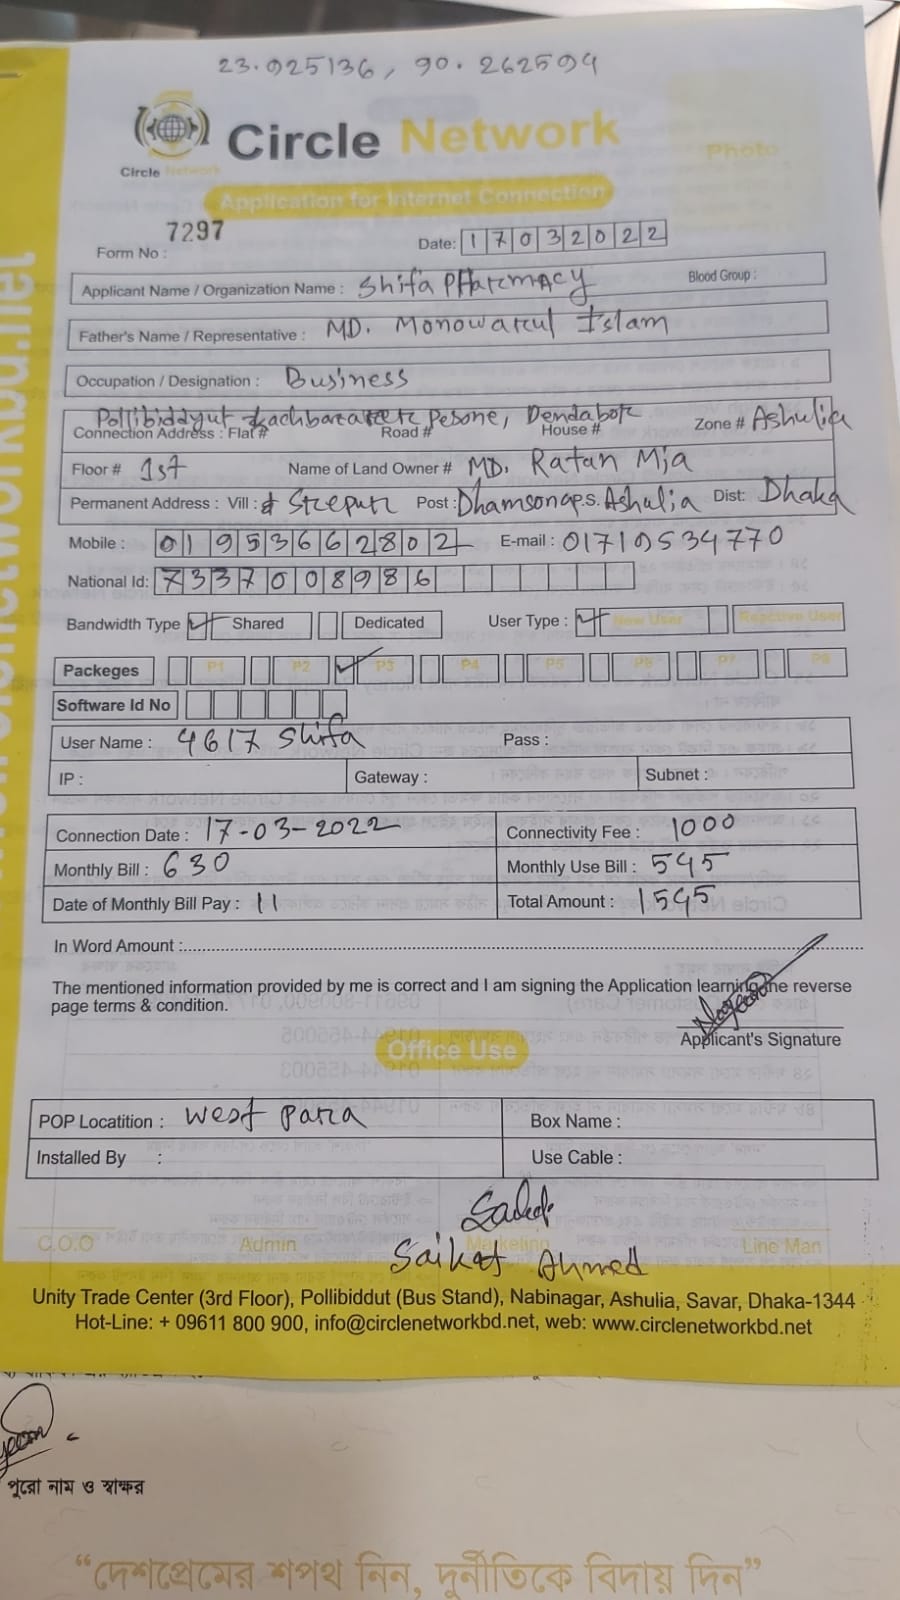 23.925136, 90.262594
Circle Network
Circle Network
Photo
Application for Internet Connection
Form No : 7297
Date: 17032022
Applicant Name / Organization Name : Shifa PHarmacy Blood Group :
Father's Name / Representative : MD. Monowarul Islam
Occupation / Designation : Business
Pollibiddyut kachbazarer Pesone, Dendabor
Connection Address : Flat # Road # House # Zone # Ashulia
Floor # 1st Name of Land Owner # MD. Ratan Mia
Permanent Address : Vill : Sreepur Post : Dhamsona P.S. Ashulia Dist: Dhaka
Mobile : 01953662802 E-mail : 01710534770
National Id: 7337008986
Bandwidth Type Shared Dedicated User Type : New User Reactive User
Packeges P1 P2 P3 P4 P5 P6 P7 P8
Software Id No
User Name : 4617 Shifa Pass :
IP : Gateway : Subnet :
Connection Date : 17-03-2022 Connectivity Fee : 1000
Monthly Bill : 630 Monthly Use Bill : 545
Date of Monthly Bill Pay : 11 Total Amount : 1545
In Word Amount :
The mentioned information provided by me is correct and I am signing the Application learning the reverse
page terms & condition.
Applicant's Signature
Office Use
POP Locatition : West Para Box Name :
Installed By : Use Cable :
C.O.O Admin Marketing Line Man
Saikat Ahmed
Unity Trade Center (3rd Floor), Pollibiddut (Bus Stand), Nabinagar, Ashulia, Savar, Dhaka-1344
Hot-Line: + 09611 800 900, info@circlenetworkbd.net, web: www.circlenetworkbd.net
পুরো নাম ও স্বাক্ষর
“দেশপ্রেমের শপথ নিন, দুর্নীতিকে বিদায় দিন”